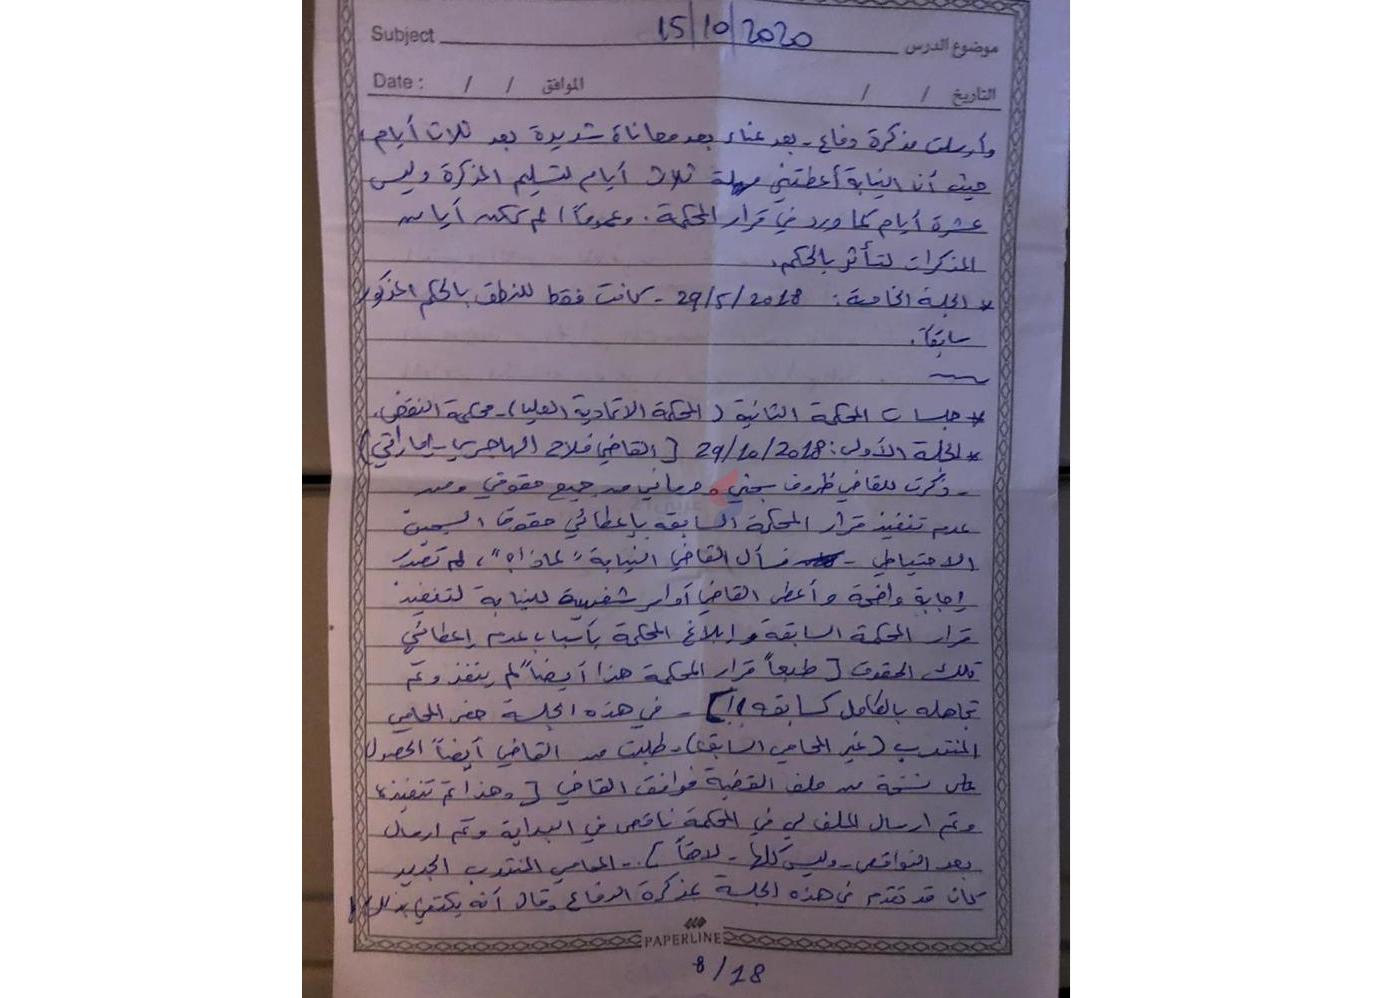 Subject 15/10/2020 موضوع الدرس
Date : / / الموافق / / التاريخ
وأرسلت مذكرة دفاع - بعد عناء بعد معاناة شديدة بعد ثلاث أيام،
حيث أن النيابة أعطتني مهلة ثلاث أيام لتسليم المذكرة وليس
عشرة أيام كما ورد في قرار المحكمة. وعموماً لم تكن أيا من
المذكرات لتتأثر بالحكم.
* الجلسة الخامسة: 29/5/2018 - كانت فقط للنطق بالحكم المذكور
سابقاً.
* جلسات المحكمة الثانية (المحكمة الاتحادية العليا) - محكمة النقض.
* الجلسة الأولى: 29/10/2018 [القاضي فلاح الهاجري - إماراتي)
- ذكرت للقاضي ظروف سجني وحرماني من جميع حقوقي ومن
عدم تنفيذ قرار المحكمة السابقة بإعطائي حقوق السجين
الاحتياطي - فسأل القاضي النيابة "لماذا؟"، لم تقدم
إجابة واضحة وأعطى القاضي أوامر شفهية للنيابة لتنفيذ
قرار المحكمة السابقة وإبلاغ المحكمة بأسباب عدم إعطائي
تلك الحقوق [طبعاً قرار المحكمة هذا أيضاً لم ينفذ وتم
تجاهله بالكامل كسابقه!!] - في هذه الجلسة حضر المحامي
المنتدب (غير المحامي السابق) - طلبت من القاضي أيضاً الحصول
على نسخة من ملف القضية فوافق القاضي [وهذا تم تنفيذه
وتم ارسال الملف لي في المحكمة ناقص في البداية وتم ارسال
بعد النواقص - وليس كلها - لاحقاً] - المحامي المنتدب الجديد
كان قد تقدم في هذه الجلسة بمذكرة الدفاع وقال أنه يكتفي بذلك
PAPERLINE
8/18